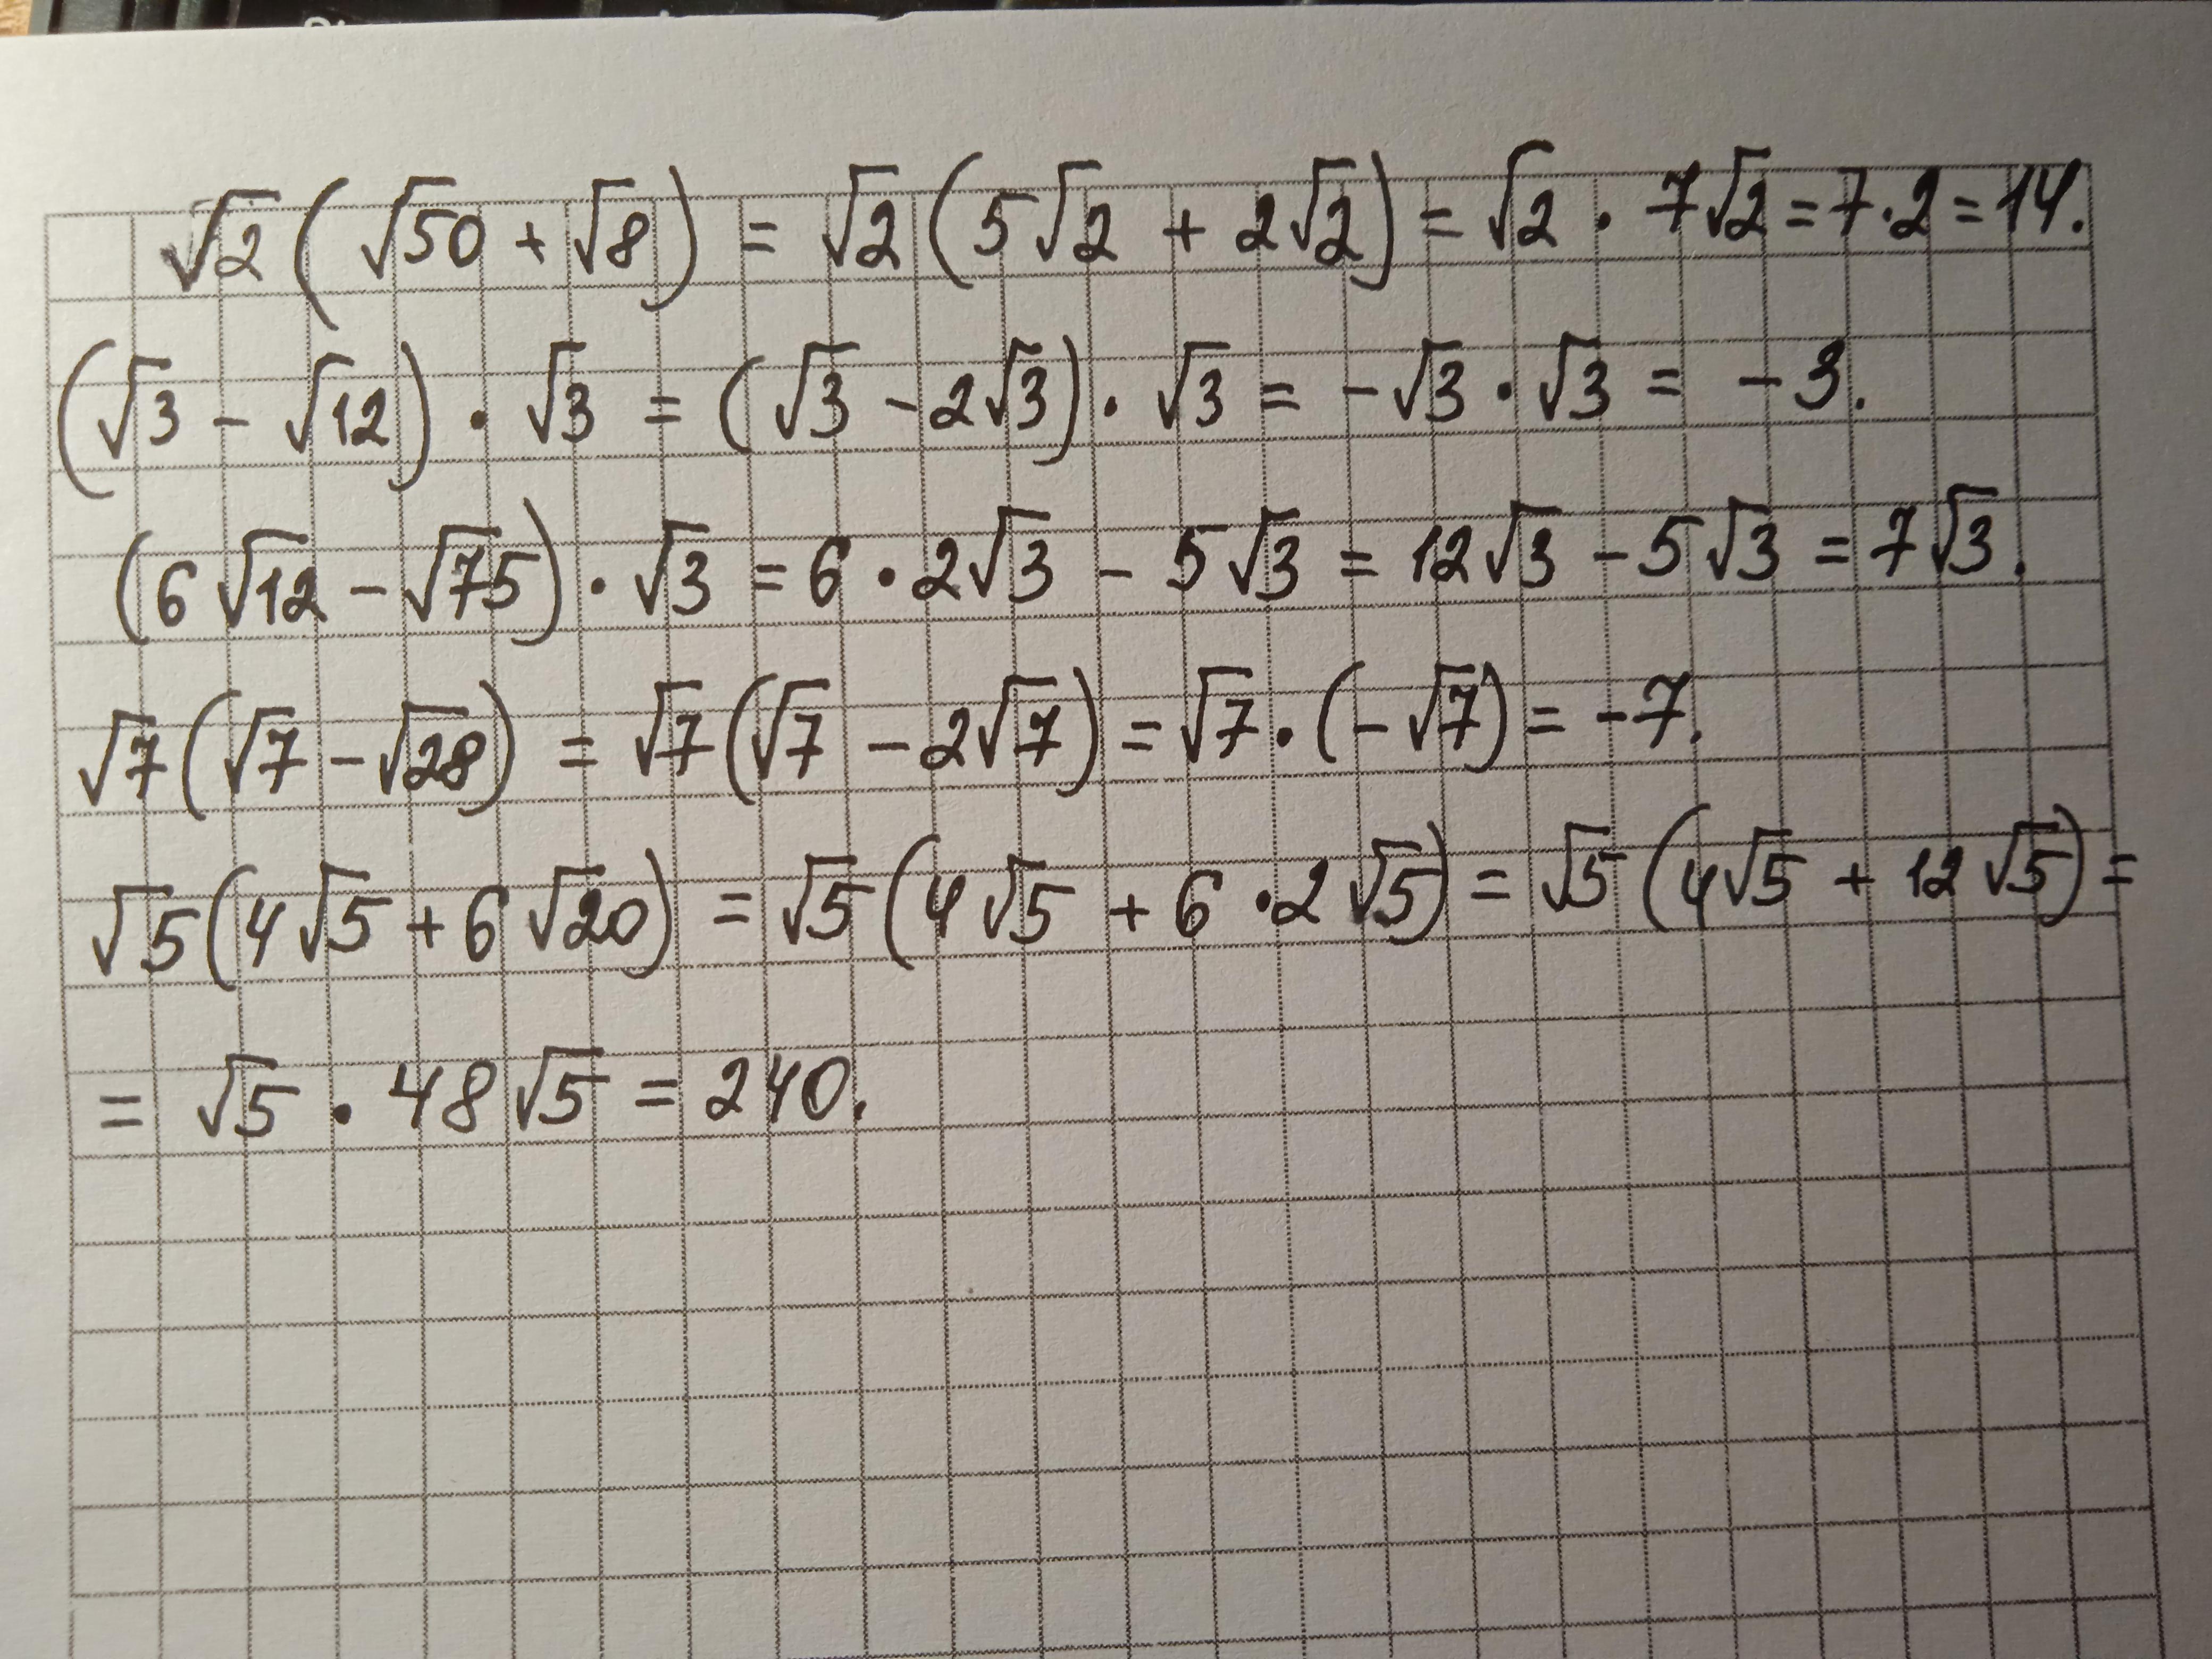 √2 (√50 + √8) = √2 (5√2 + 2√2) = √2 · 7√2 = 7·2 = 14.
(√3 - √12) · √3 = (√3 - 2√3) · √3 = -√3 · √3 = -3.
(6√12 - √75) · √3 = 6 · 2√3 - 5√3 = 12√3 - 5√3 = 7√3.
√7 (√7 - √28) = √7 (√7 - 2√7) = √7 · (-√7) = -7.
√5 (4√5 + 6√20) = √5 (4√5 + 6 · 2√5) = √5 (4√5 + 12√5) =
= √5 · 48√5 = 240.